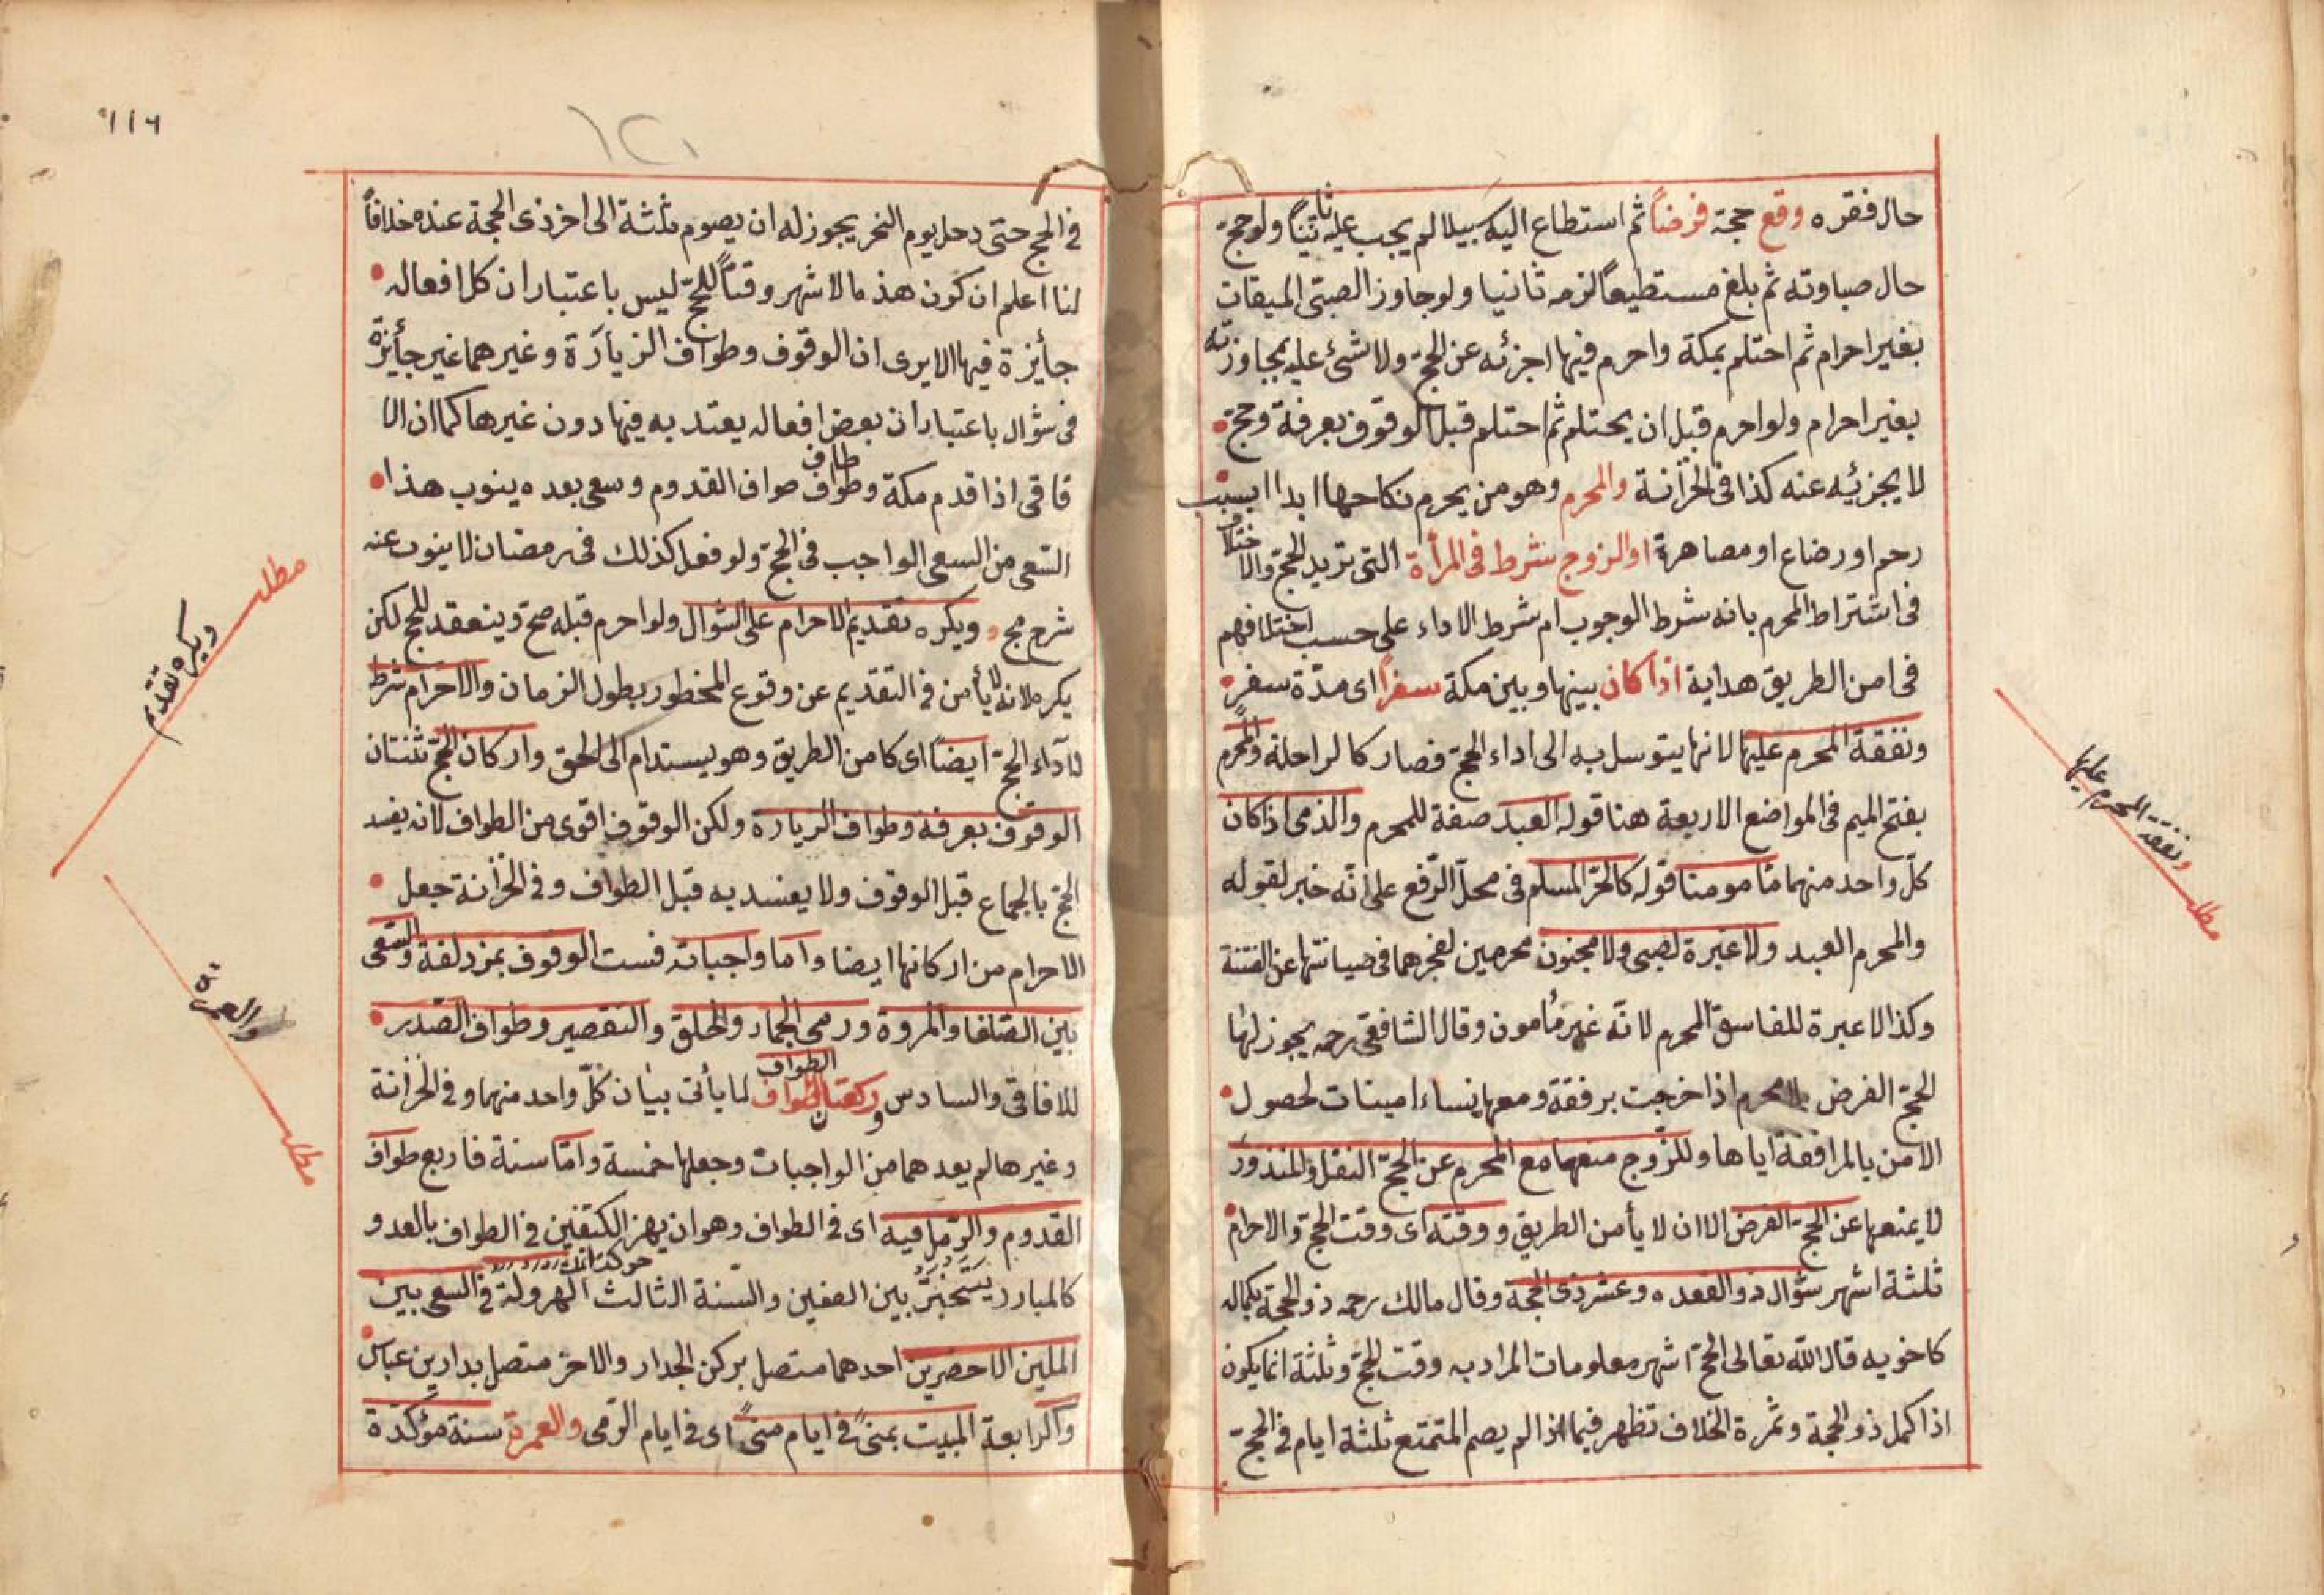 حال فقره وقع حجة فرضاً ثم استطاع اليه سبيلا لم يجب عليه ثانياً ولو حج
حال صباوته ثم بلغ مستطيعاً لزمه ثانيا ولو جاوز الصبى الميقات
بغير احرام ثم احتلم بمكة واحرم فيها اجزئه عن الحج ولا شئ عليه بمجاوزته
بغير احرام ولو احرم قبل ان يحتلم ثم احتلم قبل الوقوف بعرفة وحج
لا يجزئيه عنه كذا فى الخزانة والمحرم وهو من يحرم نكاحها ابدا بسبب
رحم او رضاع او مصاهرة او الزوج شرط فى المرأة التى تريد الحج والاختلاف
فى اشتراط المحرم بانه شرط الوجوب ام شرط الاداء على حسب اختلافهم
فى امن الطريق هداية اذا كان بينها وبين مكة سفراً اى مدّة سفر
ونفقة المحرم عليها لانها يتوسل به الى اداء الحج فصار كالراحلة والمحرم
بفتح الميم فى المواضع الاربعة هنا قوله العبد صفة للمحرم والذمى اذا كان
كلّ واحد منهما مأمومنا قوله كالحرّ المسلم فى محلّ الرّفع على انّه خبر لقوله
والمحرم العبد ولا عبرة لصبى ولا مجنون محرمين لعجزهما فى صيانتها عن الفتنة
وكذا لا عبرة للفاسق المحرم لانّه غير مأمون وقال الشافعى رحمه يجوز لها
الحج الفرض بلا محرم اذا خرجت برفقة ومعها نساء امينات لحصول
الامن بالمرافقة اياها وللزّوج منعها مع المحرم عن الحجّ النفل والمنذور
لا يمنعها عن الحج الفرض الا ان لا يأمن الطريق ووقته اى وقت الحج والاحرام
ثلثة اشهر شوّال ذو القعده وعشر ذى الحجة وقال مالك رحمه ذو الحجة بكماله
كاخويه قال الله تعالى الحج اشهر معلومات المراد به وقت الحج وثلثة انما يكون
اذا كمل ذو الحجة وثمرة الخلاف تظهر فيما اذا لم يصم المتمتع ثلثة ايام فى الحج
ونفقة المحرم عليها
مطلب
١١٦
١٢١
فى الحج حتى دخل يوم النحر يجوز له ان يصوم ثلثة الى اخر ذى الحجة عنده خلافاً
لنا اعلم ان كون هذه الاشهر وقتاً للحج ليس باعتبار ان كل افعاله
جأيزة فيها الا يرى ان الوقوف وطواف الزيارة وغيرهما غير جأيزة
فى شوّال باعتبار ان بعض افعاله يعتد به فيها دون غيرها كما ان الا
فاقى اذا قدم مكة وطاف طواف القدوم وسعى بعده ينوب هذا
السّعى من السعى الواجب فى الحج ولو فعل كذلك فى رمضان لا ينوب عنه
شرح مجمع ويكره تقديم الاحرام على الشوال ولو احرم قبله صح وينعقد للحج لكن
يكره لانه لا يأمن فى التقديم عن وقوع المحظور بطول الزمان والاحرام شرط
لاداء الحج ايضاً اى كامن الطريق وهو يستدام الى الحلق واركان الحج ثنتان
الوقوف بعرفة وطواف الزيارة ولكن الوقوف اقوى من الطواف لانه يفسد
الحج بالجماع قبل الوقوف ولا يفسد به قبل الطواف وفى الخزانة جعل
الاحرام من اركانها ايضا واما واجباته فست الوقوف بمزدلفة والسّعى
بين الصّفا والمروة ورمى الجمار والحلق والتقصير وطواف الصّدر
للافاقى والسادس وركعتا الطواف لما يأتى بيان كلّ واحد منهما وفى الخزانة
وغيرها لم يعدهما من الواجبات وجعلها خمسة وامّا سنة فاربع طواف
القدوم والرّمل فيه اى فى الطواف وهو ان يهز الكتفين فى الطواف بالعدو
كالمبارز يتبختر بين الصفين والسّنة الثالث الهرولة فى السعى بين
الملين الاخضرين احدهما متصل بركن الجدار والاخر متصل بدار بن عباس
والرابعة المبيت بمنىً فى ايام منىً اى فى ايام الرّمى والعمرة سنة مؤكّدة
مطلب
ويكره تقديم
والعمرة
مطلب